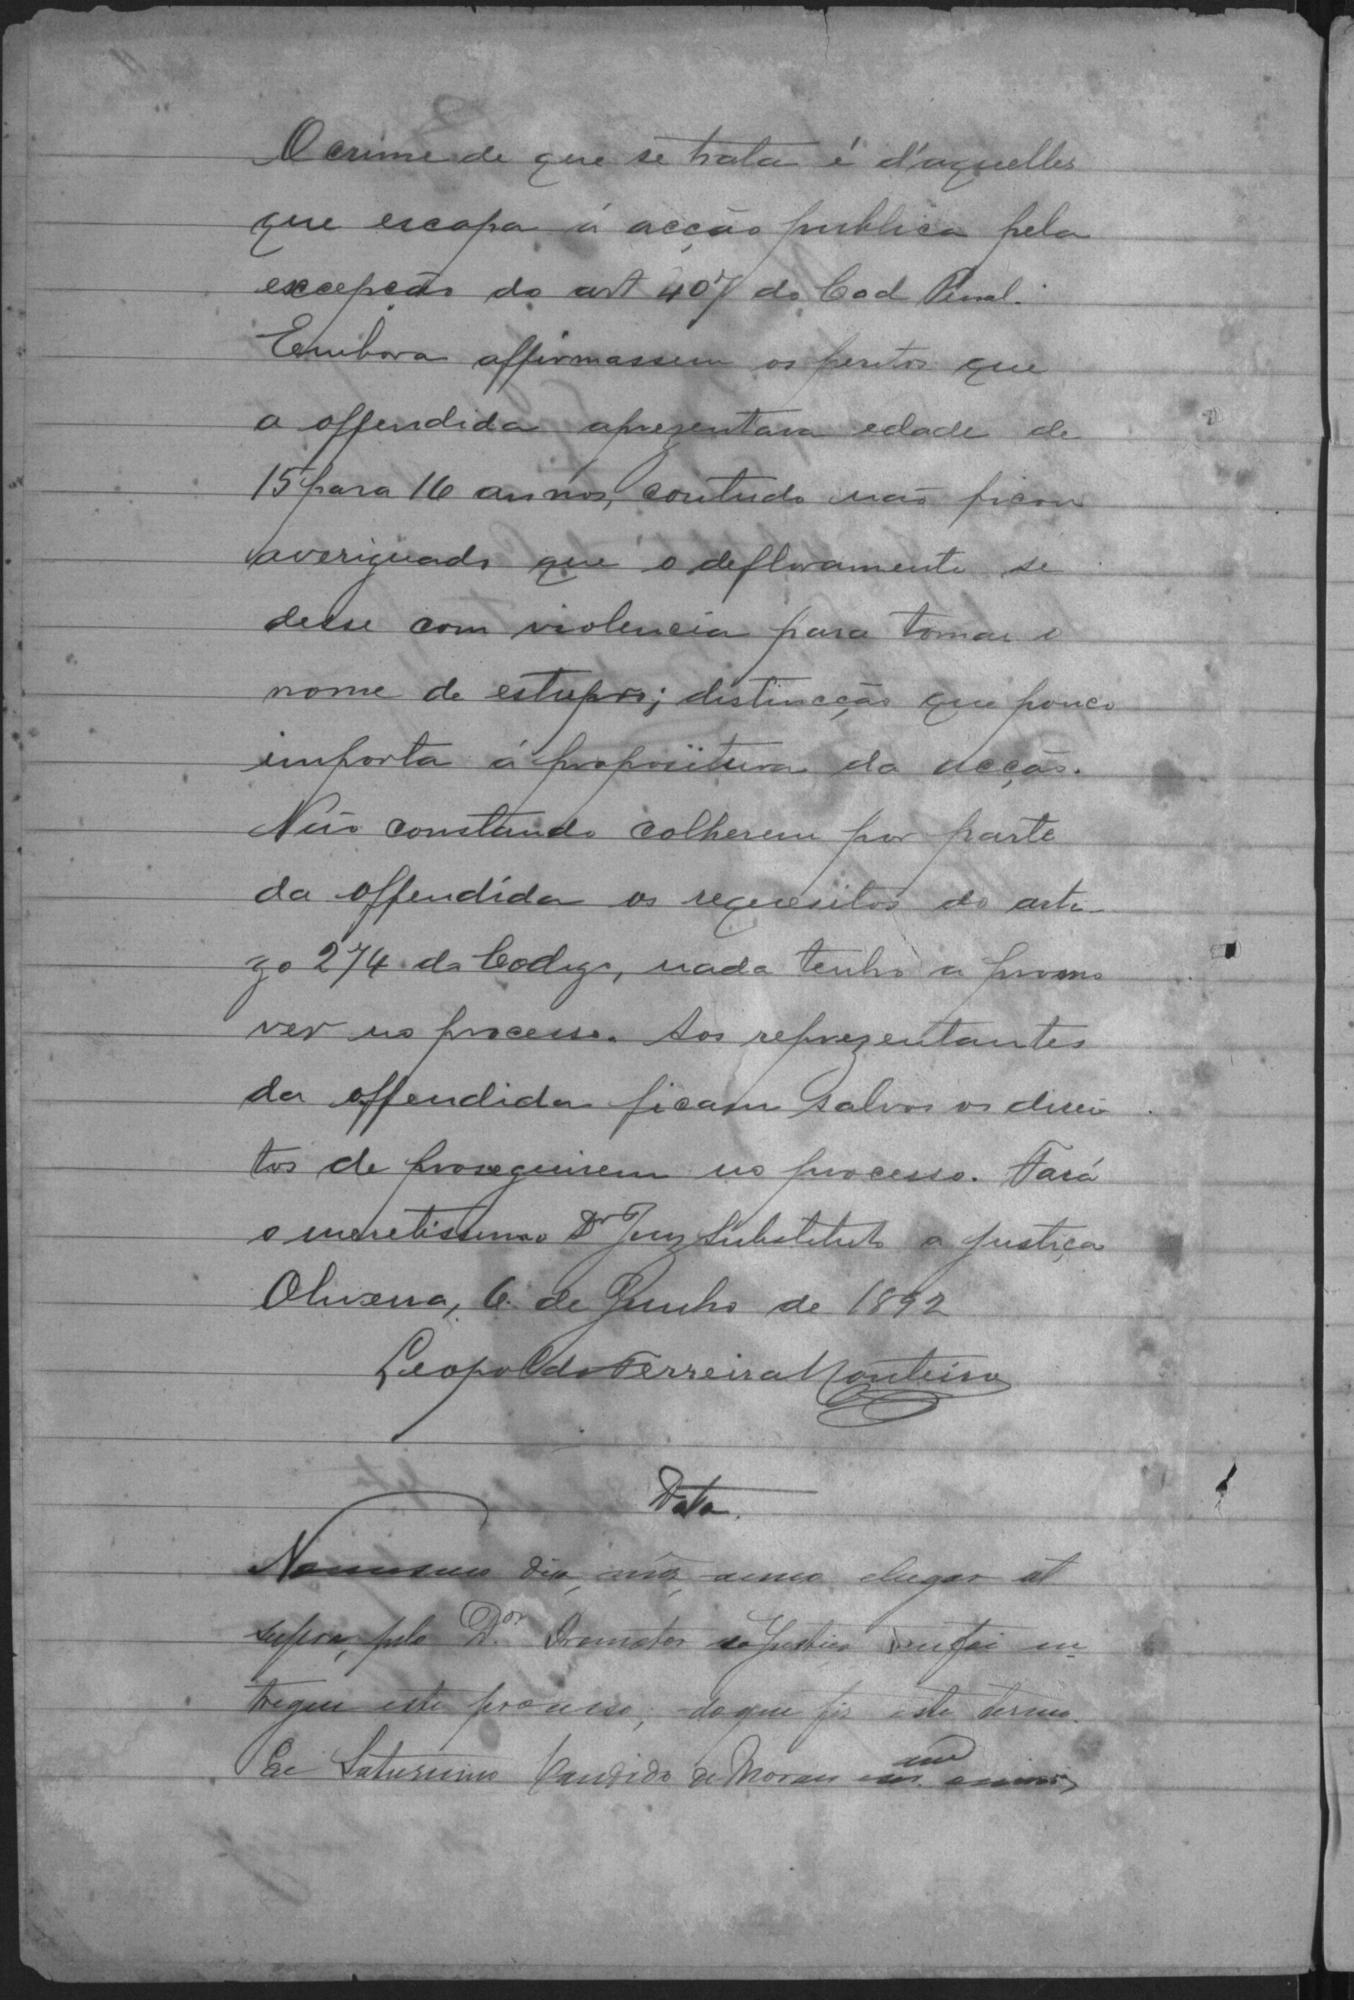 O crime de que se trata é d'aquelles
que escapa á acção publica pela
excepção do art 407 do Cod Penal.
Embora affirmassem os peritos que
a offendida aprezentava edade de
15 para 16 annos, contudo não ficou
averiguado que o defloramento se
desse com violencia para tomar o
nome de estupro; distincção que pouco
importa á propositura da acção.
Não constando colherem por parte
da offendida os requesitos do arti
go 274 do Codigo, nada tenho a promo
ver no processo. Aos reprezentantes
da offendida ficam salvos os direi
tos de proseguirem no processo. Fará
o meretissimo Dr Juiz Substituto a justiça
6 de Junho de 1892
Leopoldo Ferreira Monteiro
Data.
No mesmo dia, mez, anno
supra, pelo Dor Promotor foi en
tregue este processo, do que fiz este termo.
Eu Saturnino Candido de Moraes